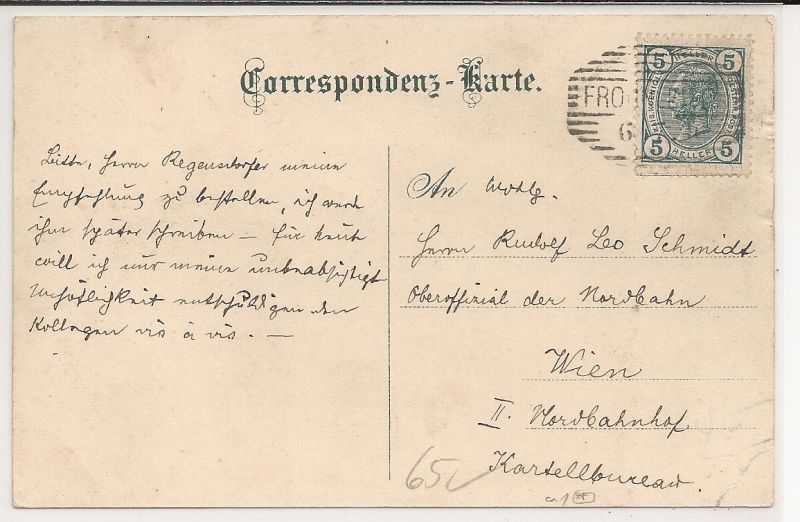 Correspondenz-Karte.
FRO
6
5 HELLER 5
5 HELLER 5
Bitte, Herrn Regensdorfer meine
Empfehlung zu bestellen, ich werde
ihm später schreiben – für heut
will ich nur meine unbeabsichtigt
Unhöflichkeit entschuldigen den
Kollegen vis à vis. –
An Wohlg.
Herrn Rudolf Leo Schmidt
Oberoffizial der Nordbahn
Wien
II. Nordbahnhof
Kartellbureau.
65